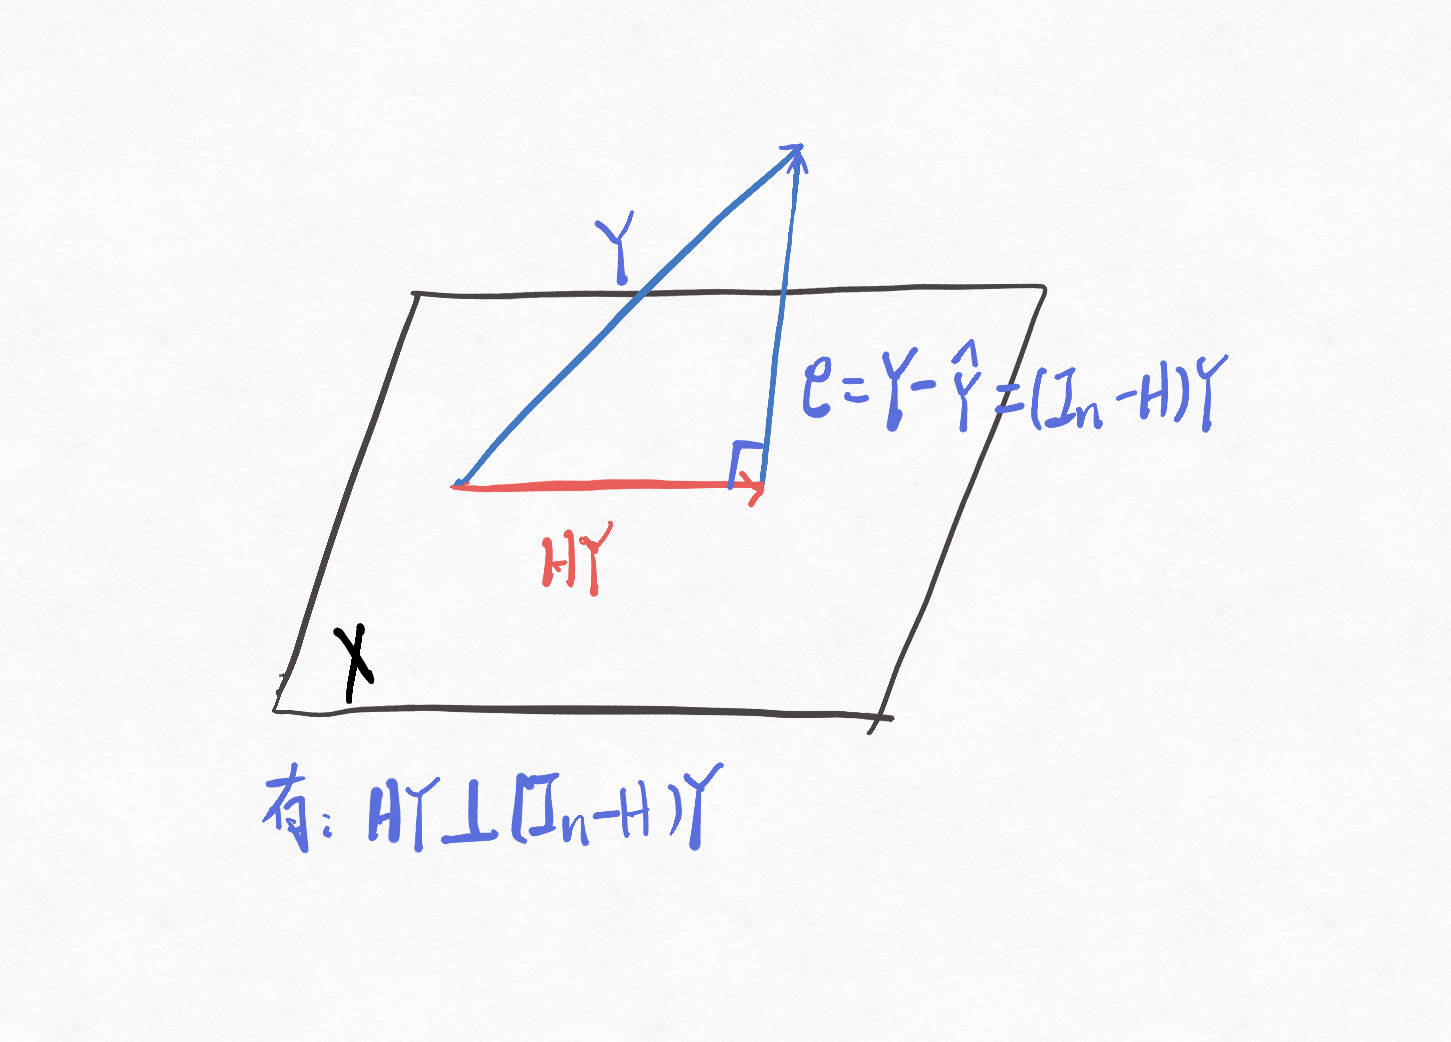 Y
e=Y-Ŷ=(In-H)Y
HY
X
有: HY⊥(In-H)Y